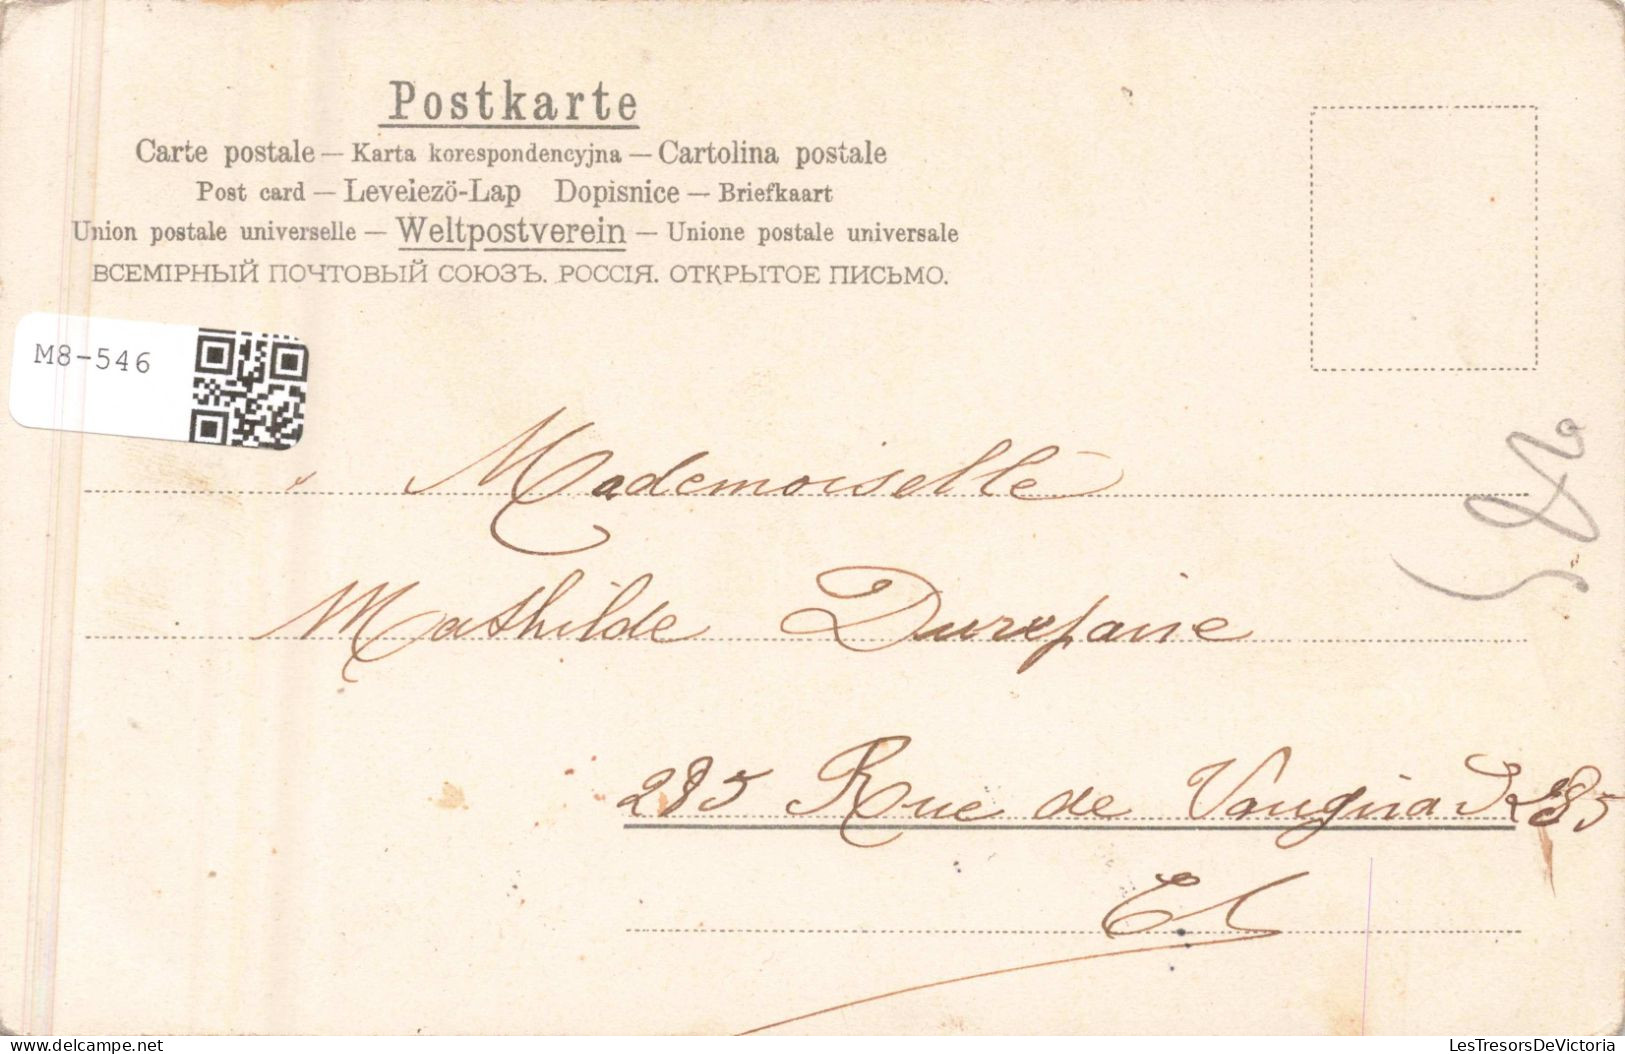 Postkarte
Carte postale — Karta korespondencyjna — Cartolina postale
Post card — Levelezö-Lap Dopisnice — Briefkaart
Union postale universelle — Weltpostverein — Unione postale universale
ВСЕМІРНЫЙ ПОЧТОВЫЙ СОЮЗЪ. РОССІЯ. ОТКРЫТОЕ ПИСЬМО.
M8-546
Mademoiselle
Mathilde
285 Rue de Vaugirard 285
LesTresorsDeVictoria